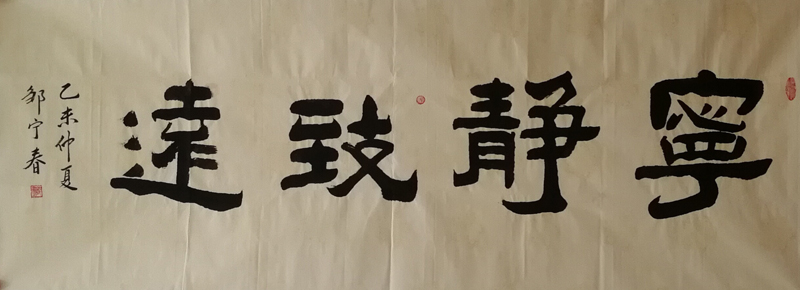 寧靜致遠
乙未仲夏
邹宁春